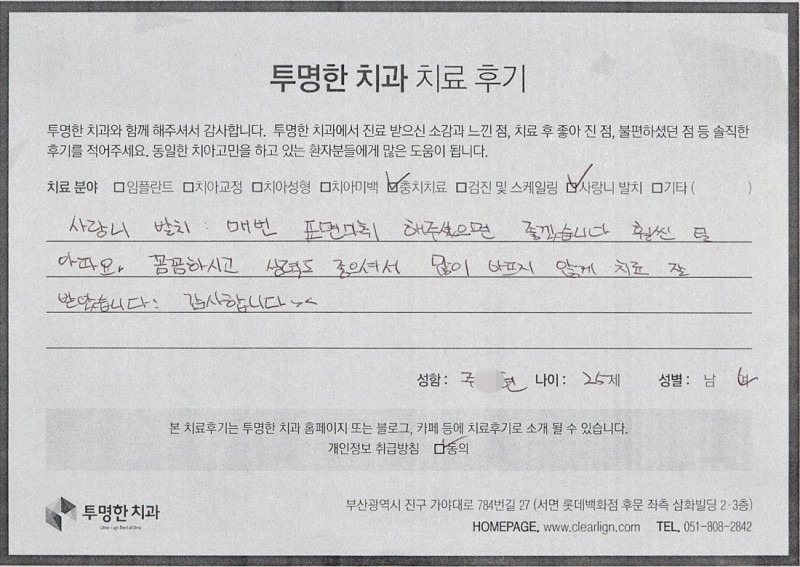 투명한 치과 치료 후기
투명한 치과와 함께 해주셔서 감사합니다. 투명한 치과에서 진료 받으신 소감과 느낀 점, 치료 후 좋아 진 점, 불편하셨던 점 등 솔직한
후기를 적어주세요. 동일한 치아고민을 하고 있는 환자분들에게 많은 도움이 됩니다.
치료 분야 □임플란트 □치아교정 □치아성형 □치아미백 ☑충치치료 □검진 및 스케일링 ☑사랑니 발치 □기타 ( )
사랑니 발치 : 매번 표면마취 해주셨으면 좋겠습니다 훨씬 덜
아파요. 꼼꼼하시고 실력도 좋으셔서 많이 아프지 않게 치료 잘
받았습니다: 감사합니다 ^^
성함 : 주 현 나이 : 25세 성별 : 남 여
본 치료후기는 투명한 치과 홈페이지 또는 블로그, 카페 등에 치료후기로 소개 될 수 있습니다.
개인정보 취급방침 ☑동의
투명한 치과
부산광역시 진구 가야대로 784번길 27 (서면 롯데백화점 후문 좌측 삼화빌딩 2·3층)
HOMEPAGE. www.clearlign.com TEL. 051-808-2842